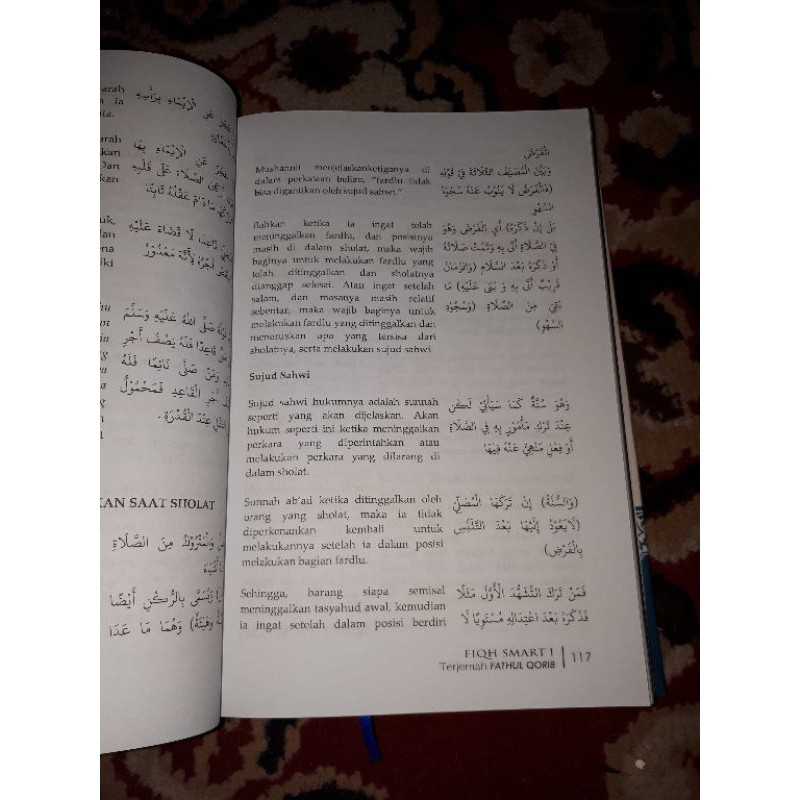 arah
ia
ta.
arah
kan
Dari
kan
uk,
dan
ena
iki
hu
KAN SAAT SHOLAT
الْإِيْمَاءِ بِرَأْسِهِ
عَنِ الْإِيْمَاءِ بِهَا
الصَّلَاةِ عَلَى قَلْبِهِ
مَا دَامَ عَقْلُهُ ثَابِتًا
قَاعِدًا لَا قَضَاءَ عَلَيْهِ
أَجْرُهُ لِأَنَّهُ مَعْذُوْرٌ
صَلَّى اللهُ عَلَيْهِ وَسَلَّمَ
قَاعِدًا فَلَهُ نِصْفُ أَجْرِ
وَمَنْ صَلَّى نَائِمًا فَلَهُ
أَجْرِ الْقَاعِدِ فَمَحْمُوْلٌ
عِنْدَ الْقُدْرَةِ .
وَالْمَتْرُوْكُ مِنَ الصَّلَاةِ
يُسَمَّى بِالرُّكْنِ أَيْضًا
وَهَيْئَةٌ) وَهُمَا مَا عَدَا
Mushannif menjelaskanketiganya di
dalam perkataan beliau, "fardlu tidak
bisa digantikan oleh sujud sahwi."
Bahkan ketika ia ingat telah
meninggalkan fardlu, dan posisinya
masih di dalam sholat, maka wajib
baginya untuk melakukan fardlu yang
telah ditinggalkan dan sholatnya
dianggap selesai. Atau ingat setelah
salam, dan masanya masih relatif
sebentar, maka wajib baginya untuk
melakukan fardlu yang ditinggalkan dan
meneruskan apa yang tersisa dari
sholatnya, serta melakukan sujud sahwi.
Sujud Sahwi
Sujud sahwi hukumnya adalah sunnah
seperti yang akan dijelaskan. Akan
hukum seperti ini ketika meninggalkan
perkara yang diperintahkan atau
melakukan perkara yang dilarang di
dalam sholat.
Sunnah ab'ad ketika ditinggalkan oleh
orang yang sholat, maka ia tidak
diperkenankan kembali untuk
melakukannya setelah ia dalam posisi
melakukan bagian fardlu.
Sehingga, barang siapa semisal
meninggalkan tasyahud awal, kemudian
ia ingat setelah dalam posisi berdiri
الْفَرْضَ
وَبَيَّنَ الْمُصَنِّفُ الثَّلَاثَةَ فِيْ قَوْلِهِ
(فَالْفَرْضُ لَا يَنُوْبُ عَنْهُ سُجُوْدُ
السَّهْوِ
بَلْ إِنْ ذَكَرَهُ) أَيِ الْفَرْضَ وَهُوَ
فِي الصَّلَاةِ أَتَى بِهِ وَتَمَّتْ صَلَاتُهُ
أَوْ ذَكَرَهُ بَعْدَ السَّلَامِ (وَالزَّمَانُ
قَرِيْبٌ أَتَى بِهِ وَ بَنَى عَلَيْهِ) مَا
بَقِيَ مِنَ الصَّلَاةِ (وَسُجُوْدِ
السَّهْوِ)
وَهُوَ سُنَّةٌ كَمَا سَيَأْتِيْ لَكِنْ
عِنْدَ تَرْكِ مَأْمُوْرٍ بِهِ فِي الصَّلَاةِ
أَوْ فِعْلِ مَنْهِيٍّ عَنْهُ فِيْهَا
(وَالسُّنَّةُ) إِنْ تَرَكَهَا الْمُصَلِّيْ
(لَا يَعُوْدُ إِلَيْهَا بَعْدَ التَّلَبُّسِ
بِالْفَرْضِ)
فَمَنْ تَرَكَ التَّشَهُّدَ الْأَوَّلَ مَثَلًا
فَذَكَرَهُ بَعْدَ اعْتِدَالِهِ مُسْتَوِيًا لَا
FIQH SMART I
Terjemah FATHUL QORIB
117